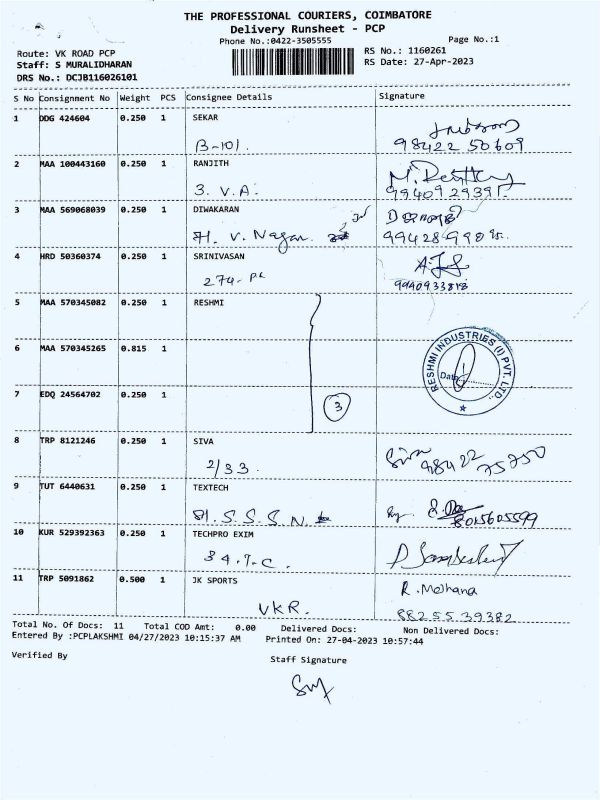 THE PROFESSIONAL COURIERS, COIMBATORE
Delivery Runsheet - PCP
Phone No.:0422-3505555
Page No.:1
Route: VK ROAD PCP
RS No.: 1160261
Staff: S MURALIDHARAN
RS Date: 27-Apr-2023
DRS No.: DCJB116026101
S No Consignment No Weight PCS Consignee Details Signature
1 DDG 424604 0.250 1 SEKAR
B-101. 98422 50609
2 MAA 100443160 0.250 1 RANJITH
3. V.A. 99409 29391.
3 MAA 569068039 0.250 1 DIWAKARAN
V. Nagar.
4 HRD 50360374 0.250 1 SRINIVASAN
274-
5 MAA 570345082 0.250 1 RESHMI
6 MAA 570345265 0.815 1
RESHMI INDUSTRIES (I) PVT. LTD.,
Date
7 EDQ 24564702 0.250 1
3
8 TRP 8121246 0.250 1 SIVA
2/33. Siva 98422 75750
9 TUT 6440631 0.250 1 TEXTECH
S. S. S. N. 8015605599
10 KUR 529392363 0.250 1 TECHPRO EXIM
34.T.C.
11 TRP 5091862 0.500 1 JK SPORTS
R. Mohana
VKR. 88255 39382
Total No. Of Docs: 11 Total COD Amt: 0.00 Delivered Docs: Non Delivered Docs:
Entered By :PCPLAKSHMI 04/27/2023 10:15:37 AM Printed On: 27-04-2023 10:57:44
Verified By
Staff Signature